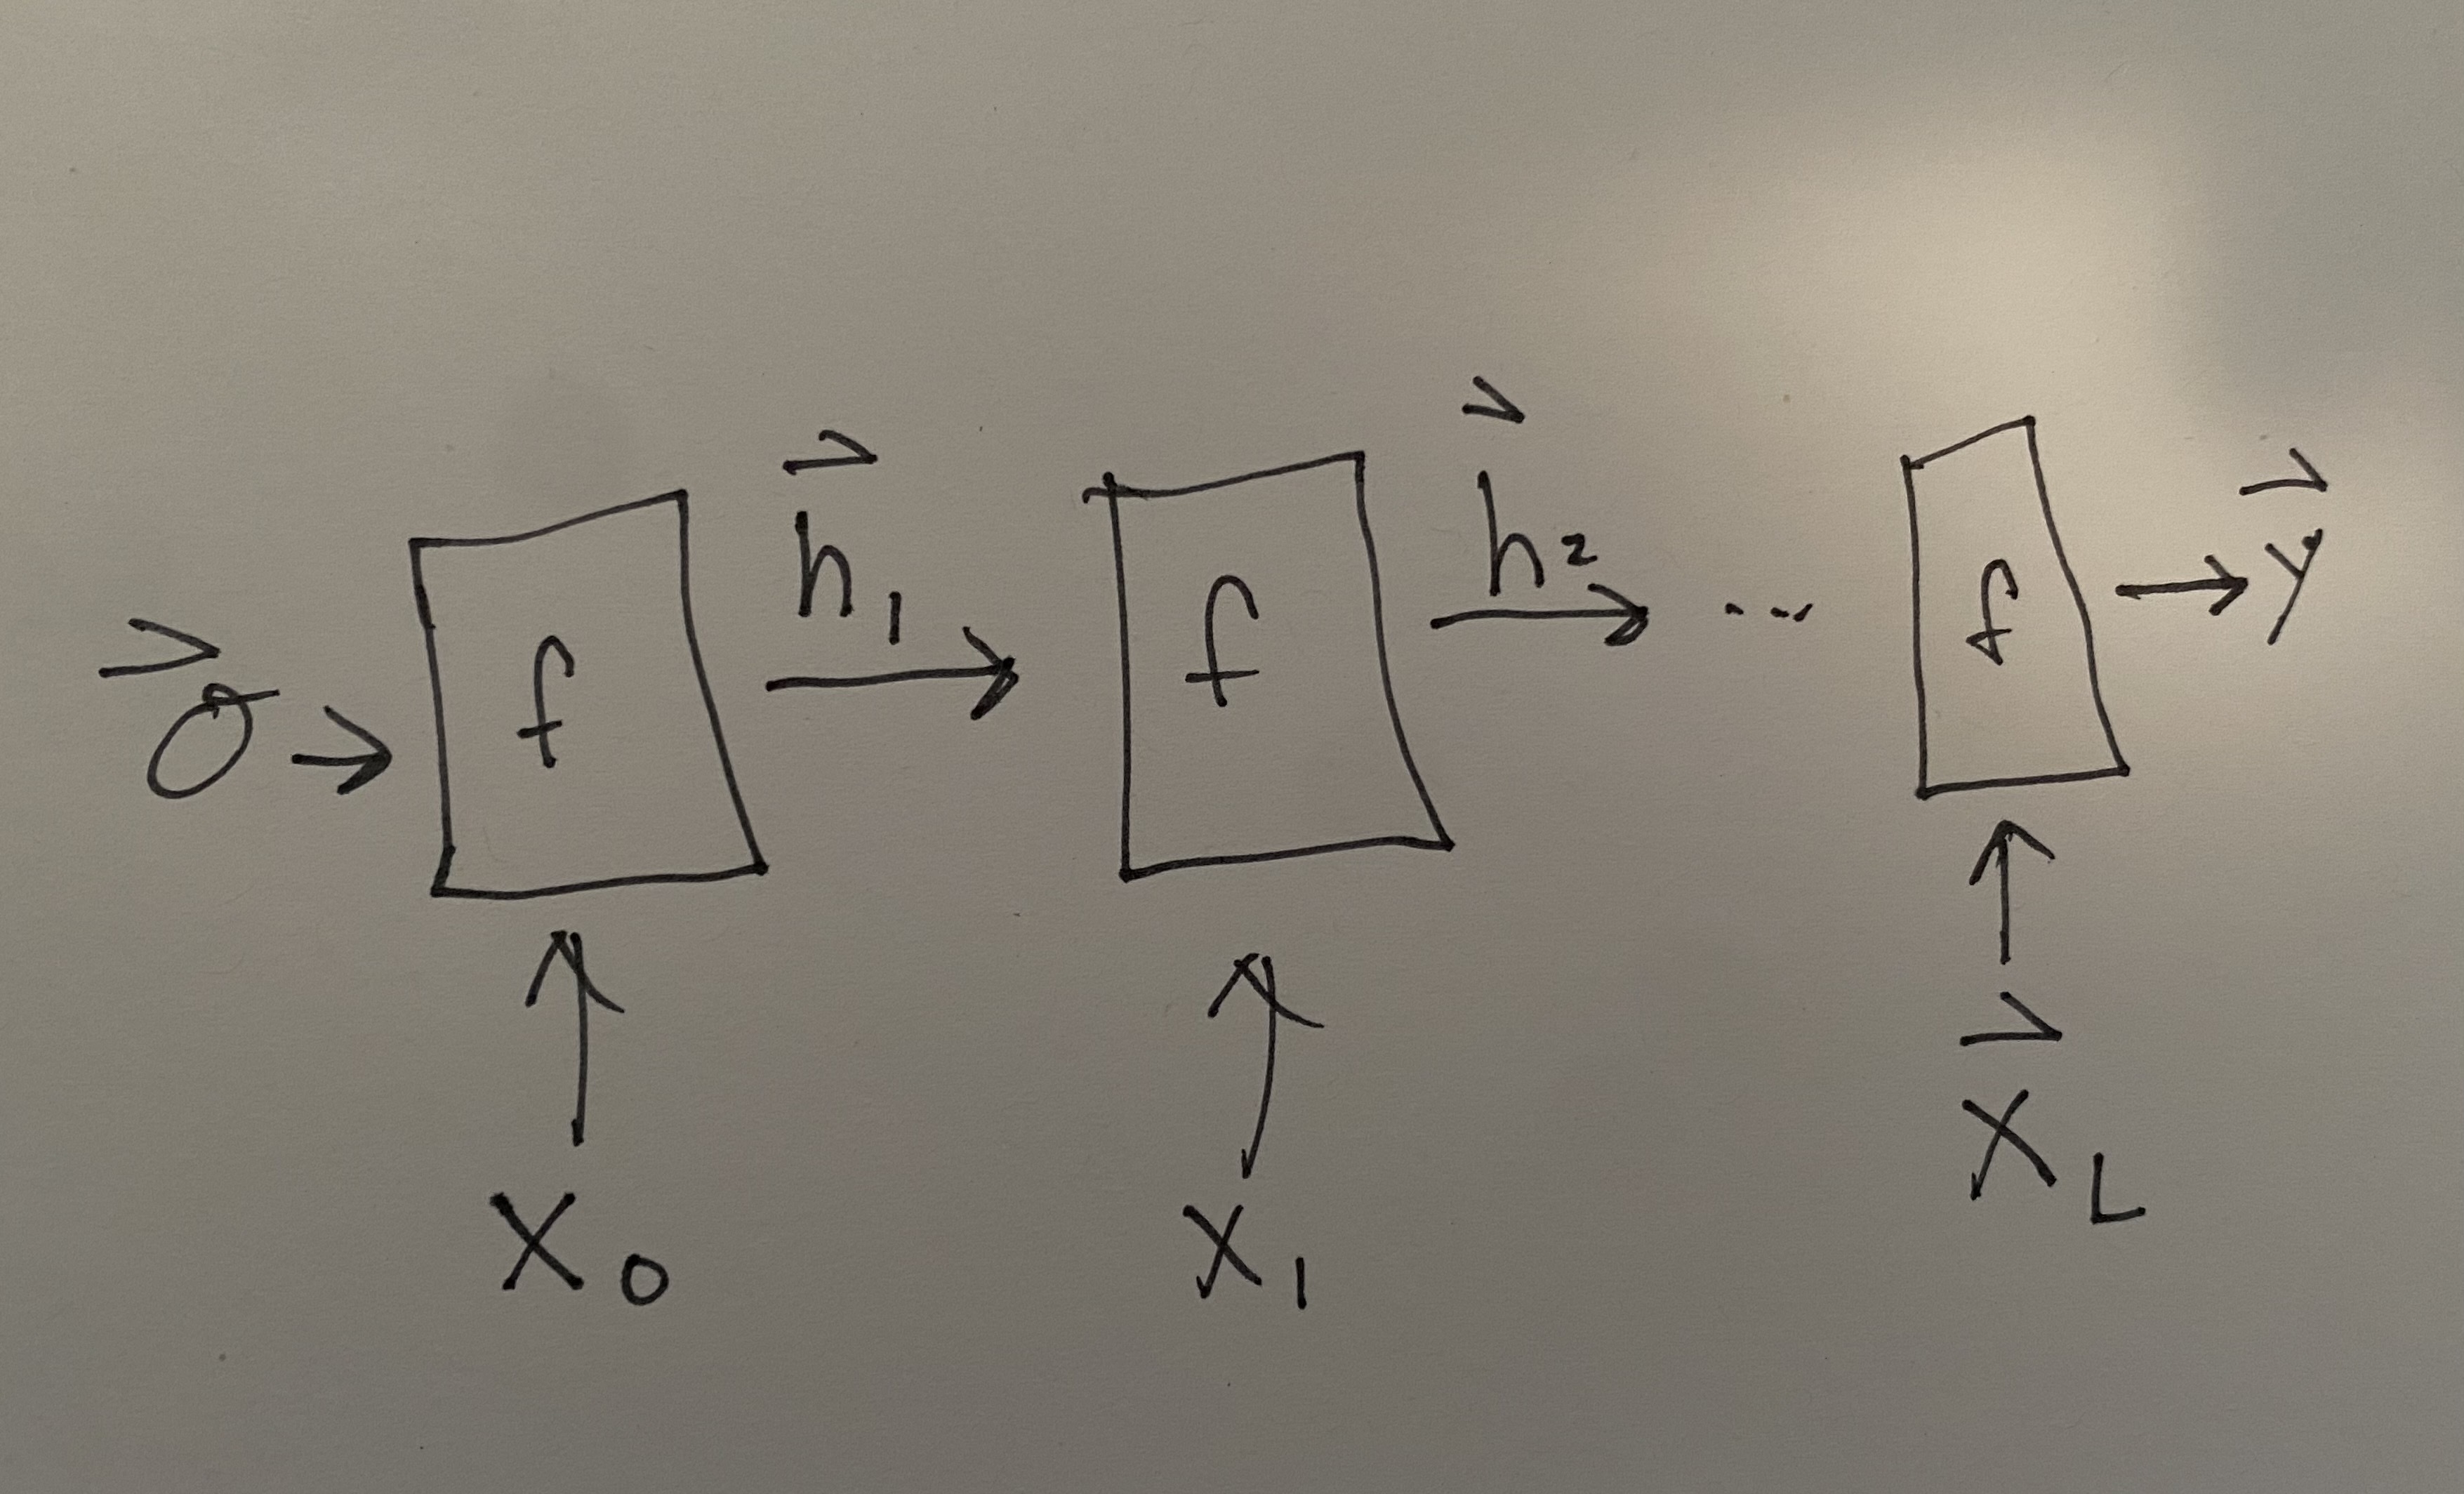 0⃗ → f h⃗₁ → f h⃗₂ → ... f → y⃗
x₀ x₁ x⃗_L